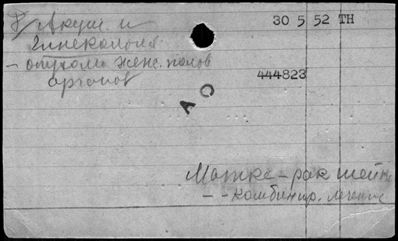 Г, Акуш. и
30 5 52 ТН
Гинекология
– опухоли женс. полов
органов
444823
А О
Матка – рак шейки
– – комбинир. лечение